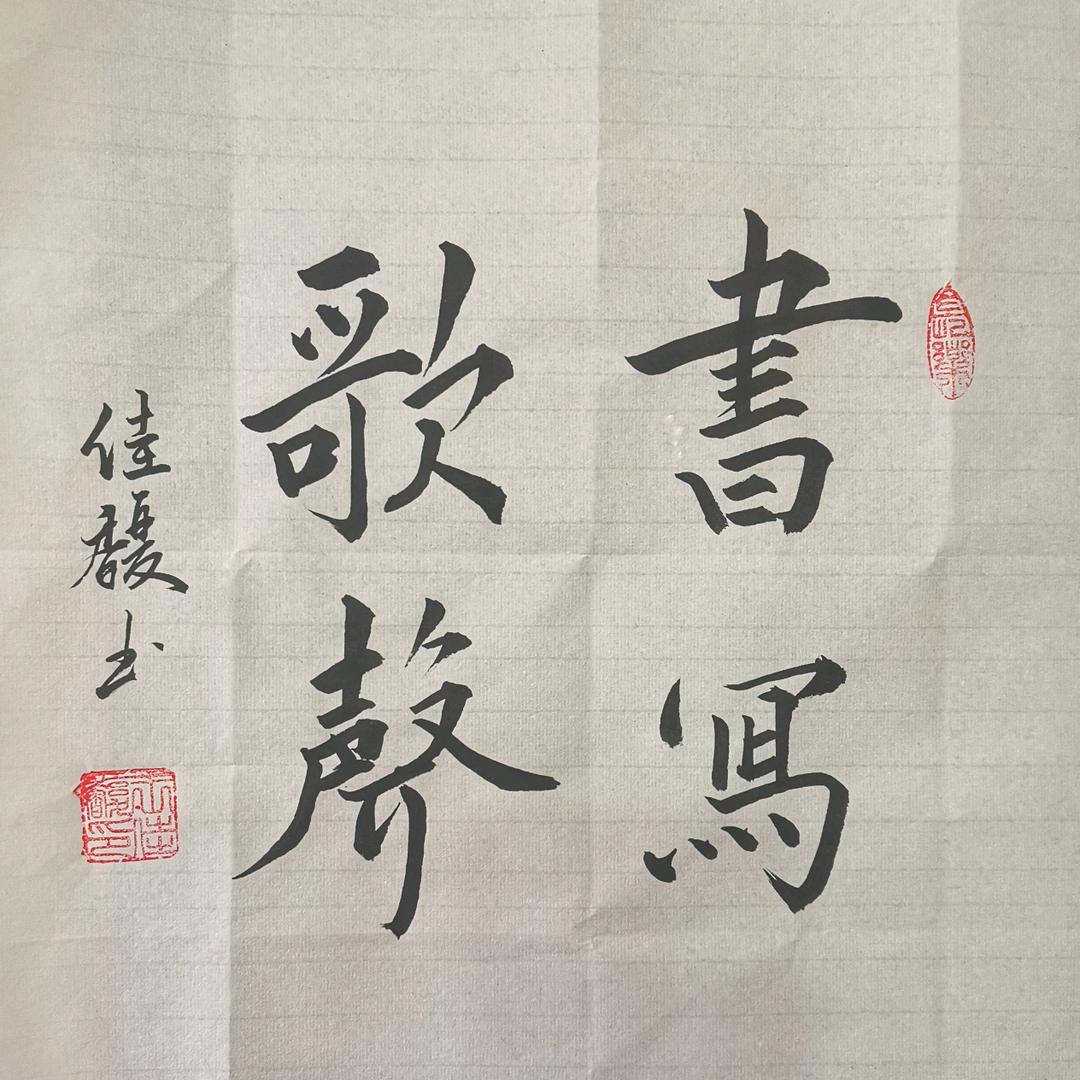 書寫
歌聲
佳馥书